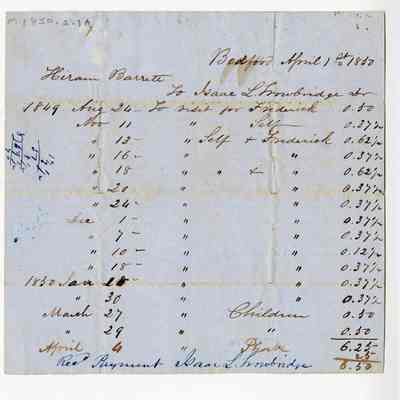 M.1850.2.1A
Bedford April 1st 1850
Hiram Barrett
To Isaac L Trowbridge Dr
1849 Aug 24 - To visit for Frederick 0.50
Nov 11 " Self 0.37½
" 13 - " Self & Frederick 0.62½
" 16 - " " 0.37½
" 18 " " & " 0.62½
" 20 " " 0.37½
" 24 - " " 0.37½
Dec 1 - " " 0.37½
" 7 - " " 0.37½
" 10 - " " 0.12½
" 18 - " " 0.37½
1850 Jan 28 - " " 0.37½
" 30 " " 0.37½
March 27 " Children 0.50
" 29 " " 0.50
April 4 " 6.25
25
Recd Payment Isaac L Trowbridge 6.50